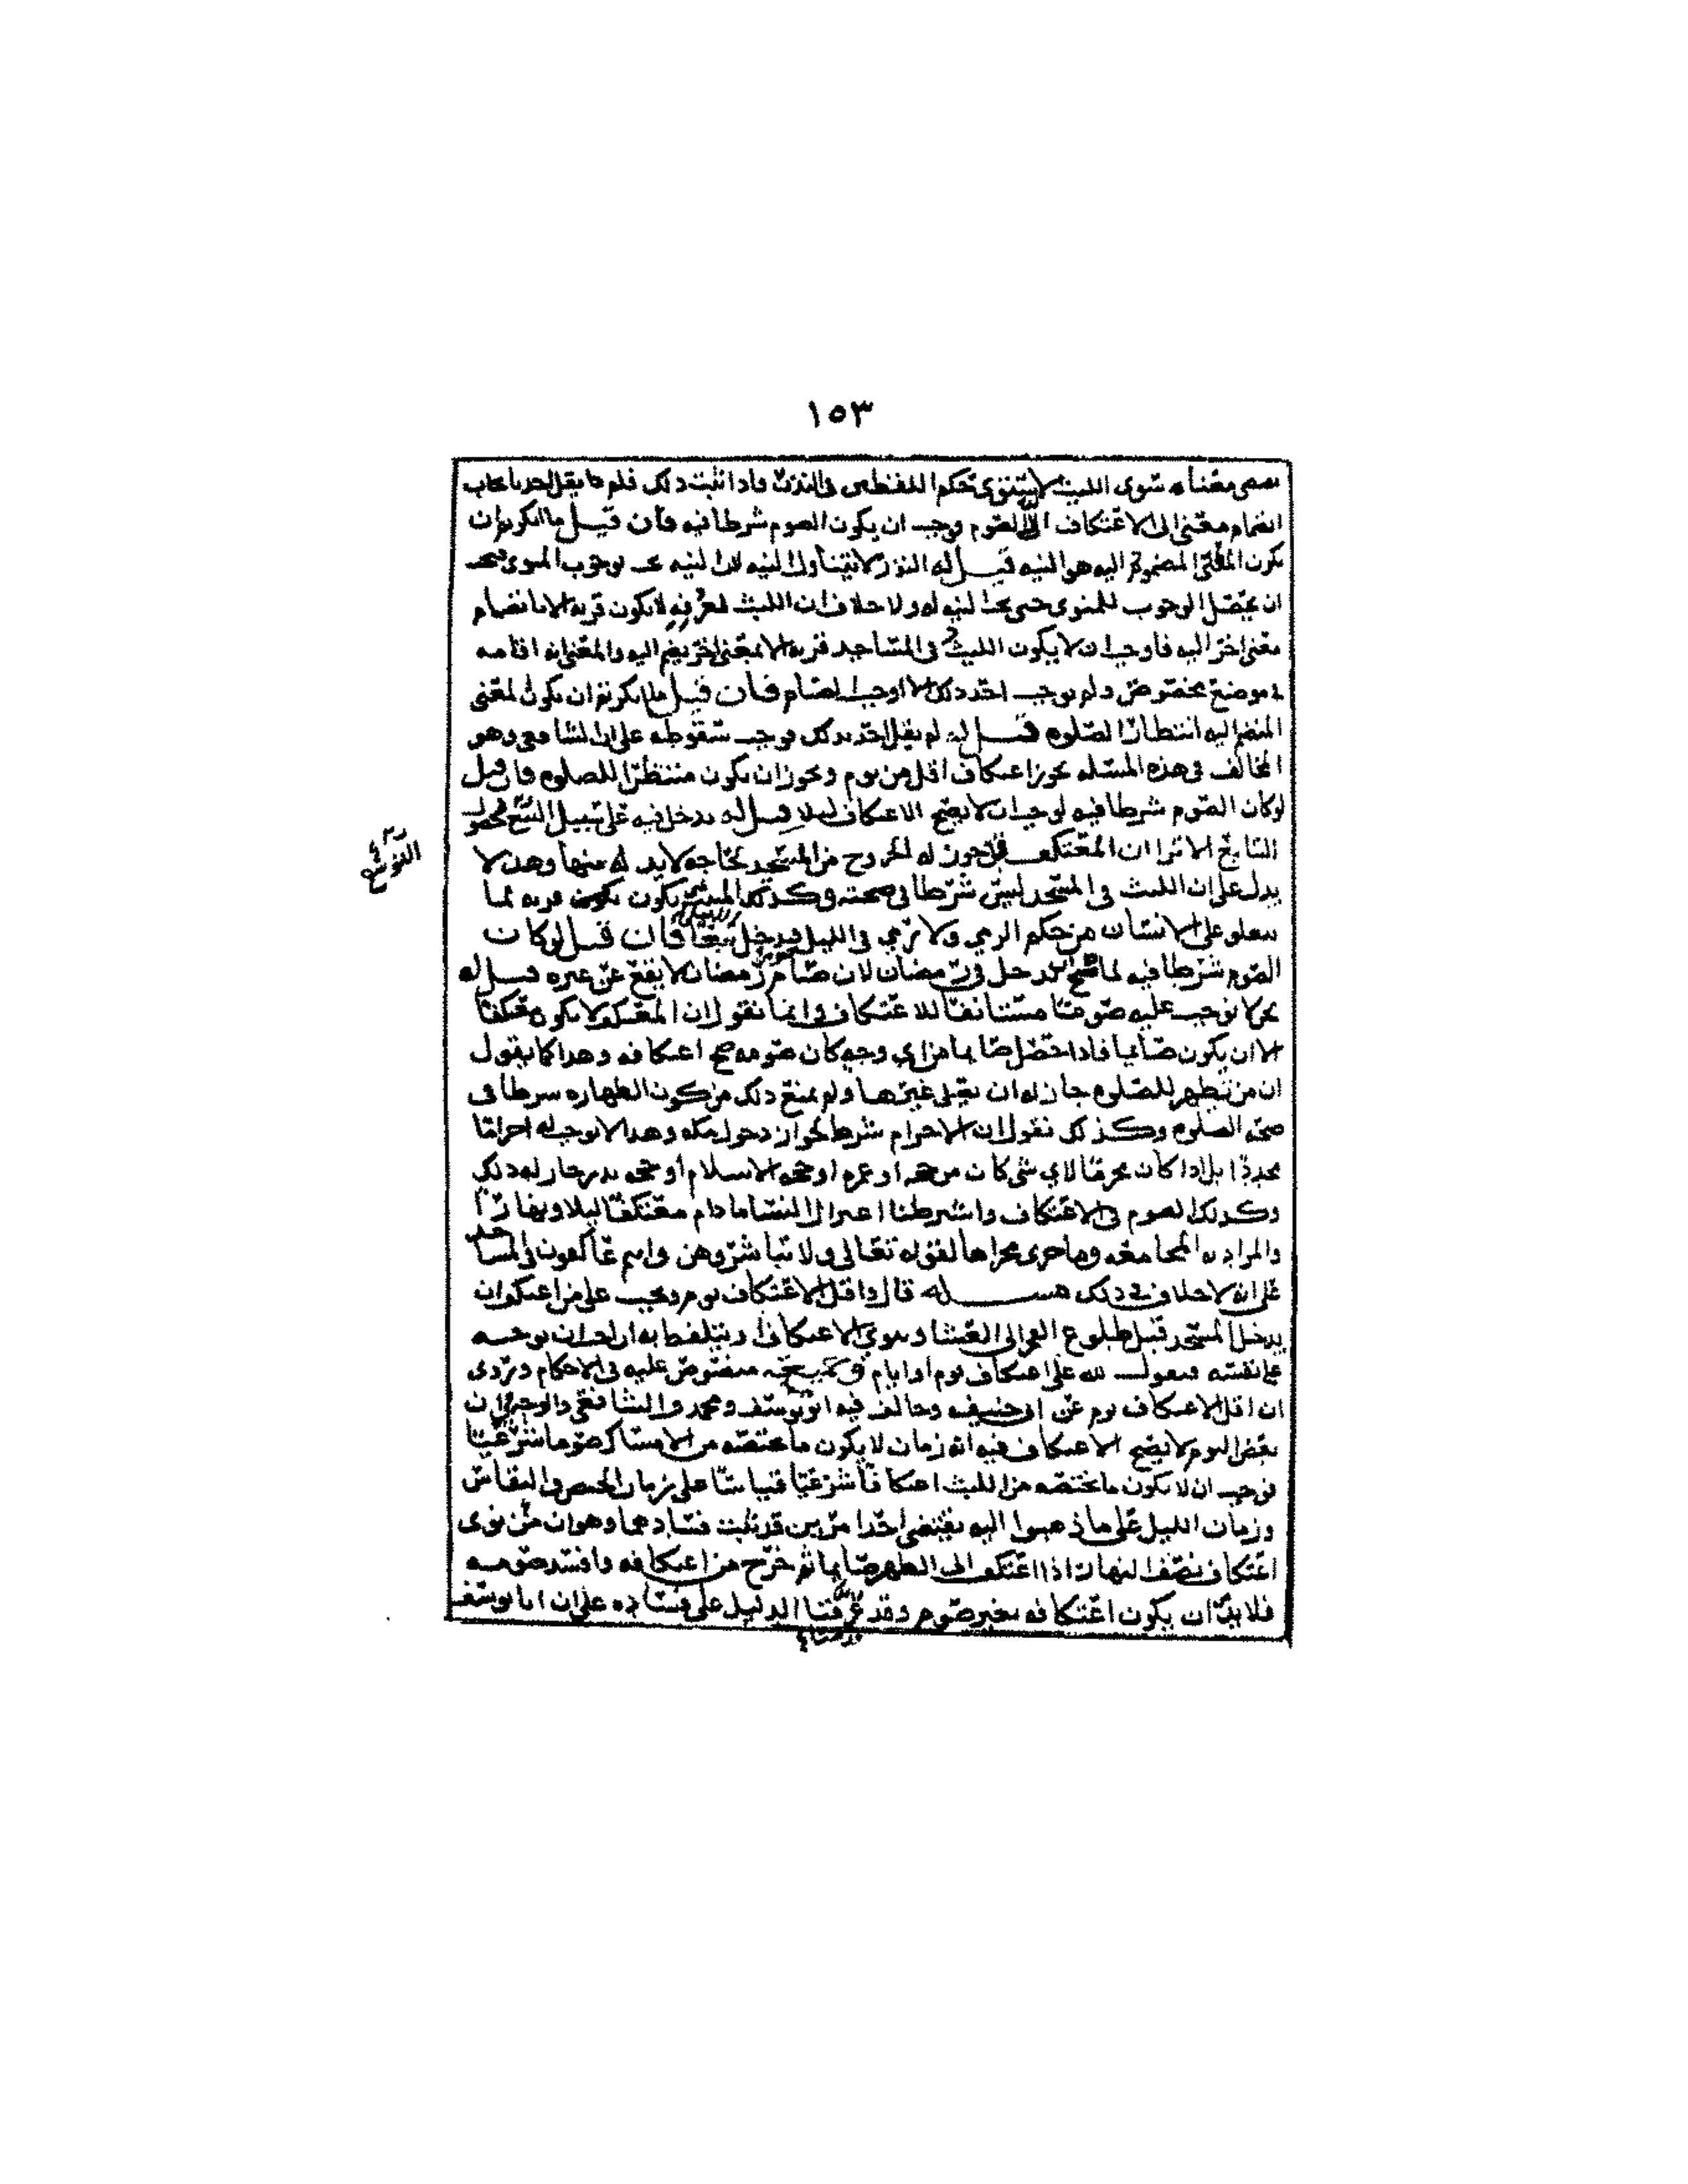 ١٥٣
معناه سوى اللبث لاستوى حكم اللفظين في النذر فاذا ثبت ذلك فلم يقل احد بايجاب
انضمام معنى الى الاعتكاف الا الصوم وجب ان يكون الصوم شرطا فيه فان قيل ما انكرتم ان
يكون المعنى المضموم اليه هو النيه قيل له النذر لا يتناول النيه لان النيه تجب لوجوب المنوي
ان يحصل الوجوب للمنوي حتى تجب النيه له ولا خلاف ان اللبث لا يكون قربه الا بانضمام
معنى اخر اليه فاوجب ان لا يكون اللبث في المساجد قربه الا بمعنى اخر يضم اليه والمعنى انه اقامه
في موضع مخصوص ولم يوجب احد ذلك الا اوجب الصيام فان قيل ما انكرتم ان يكون المعنى
المنضم اليه انتظار الصلوه قيل له لم يقل احد بذلك فوجب سقوطه على ان الشافعي وهو
المخالف في هذه المسئله يجوز اعتكاف اقل من يوم ويجوز ان يكون منتظرا للصلوه فان قيل
لو كان الصوم شرطا فيه لوجب ان لا يصح الاعتكاف ليلا قيل له يدخل فيه على سبيل التبع
الا ترا ان المعتكف يجوز له الخروج من المسجد لحاجه لا بد له منها وهذا لا
يدل على ان اللبث في المسجد ليس شرطا في صحته وكذلك المبيت بمنى يكون قربه لما
يتعلق على الانسان من حكم الرمي ولا رمي في الليل فيدخل تبعا فان قيل لو كان
الصوم شرطا فيه لما صح ان يدخل في رمضان لان صيام رمضان لا يقع عن غيره قيل له
نحن لا نوجب عليه صوما مستانفا للاعتكاف وانما نقول ان المعتكف لا يكون معتكفا
الا ان يكون صائما فاذا حصل صائما من اي وجه كان صومه صح اعتكافه وهذا كما يقول
ان من تطهر للصلوه جاز له ان يصلي غيرها ولم يمنع ذلك من كون الطهاره شرطا في
صحه الصلوه وكذلك نقول ان الاحرام شرط لجواز دخول مكه وهذا لا يوجب له احراما
مجددا بل اذا كان محرما لاي شي كان من حجه او عمره او حجه الاسلام او حجه نذر جاز له ذلك
وكذلك الصوم في الاعتكاف واشترطنا اعتزال النسا ما دام معتكفا ليلا ونهارا
والمراد به المجامعه وما جرى مجراها لقوله تعالى ولا تباشروهن وانتم عاكفون في المساجد
على انه لا خلاف في ذلك مسئله قال واقل الاعتكاف يوم ويجب على من اعتكف ان
يدخل المسجد قبل طلوع الفجر الى العشا وينوي الاعتكاف او يتلفظ به ان احب ان يوجبه
على نفسه فيقول لله علي اعتكاف يوم او ايام منصوص عليه في الاحكام وروى
ان اقل الاعتكاف يوم عن ابي حنيفه وخالف فيه ابو يوسف ومحمد والشافعي والوجه ان
بعض اليوم لا يصح الاعتكاف فيه انه زمان لا يكون ما يختصه من الامساك صوما شرعيا
فوجب ان لا يكون ما يختصه من اللبث اعتكافا شرعيا قياسا على زمان الحيض والنفاس
وزمان الليل على ما ذهبوا اليه يقتضي احد امرين قد ثبت فسادهما وهو ان من نوى
اعتكاف نصف النهار اذا اعتكف الى الظهر صائما ثم خرج من اعتكافه وافسد صومه
فلا بد ان يكون اعتكافه بغير صوم وقد عرفنا الدليل على فساده على ان ابا يوسف